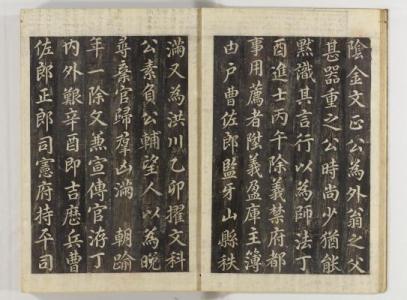 陰金文正公為外翁之父
甚器重之公時尚少猶能
默識其言行以為師法丁
酉進士丙午除義禁府都
事用薦者陞義盈庫主簿
由戶曹佐郎監牙山縣秩
滿又為洪川乙卯擢文科
公素負公輔望人以為晚
尋棄官歸穿山滿朝踰
年一除文兼宣傳官洊丁
內外艱辛酉即吉歷兵曹
佐郎正郎司憲府持平司